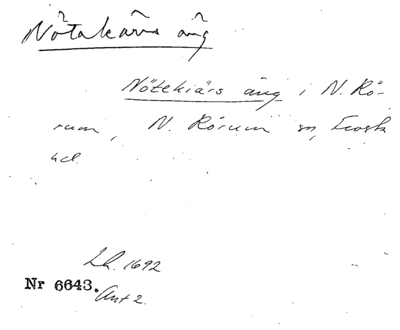 Nötakärrs äng
Nötekiärs äng i N. Rö-
rum, N. Rörum sn, Frosta
hd.
Lh. 1692
Nr 6643. Ant 2.